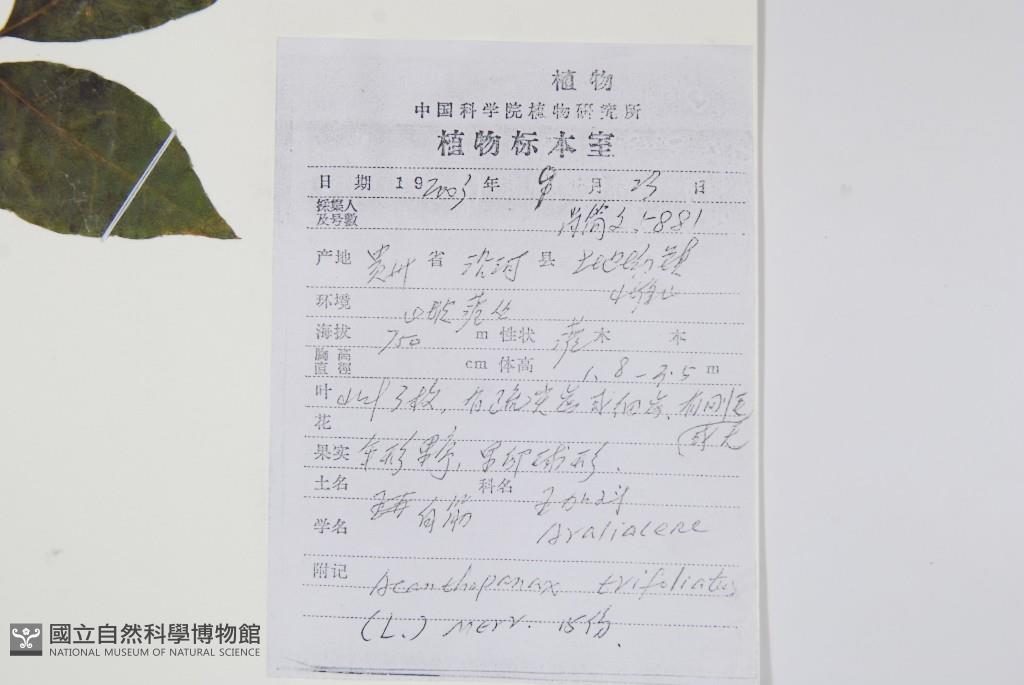 植物
中国科学院植物研究所
植物标本室
日 期 19 2003 年 9 月 23 日
採集人
及号數 5881
产地 贵州 省 沿河 县
环境 山腹灌丛
海拔 750 m 性状 灌木 本
胸高
直徑 cm 体高 1.8-2.5 m
叶 或细齿、有刚毛
花 或无
果实 伞形果序，果卵球形．
土名 白簕 科名 五加科
学名 Araliaceae
附记 Acanthopanax trifoliatus
(L.) Merr. 15份．
國立自然科學博物館
NATIONAL MUSEUM OF NATURAL SCIENCE